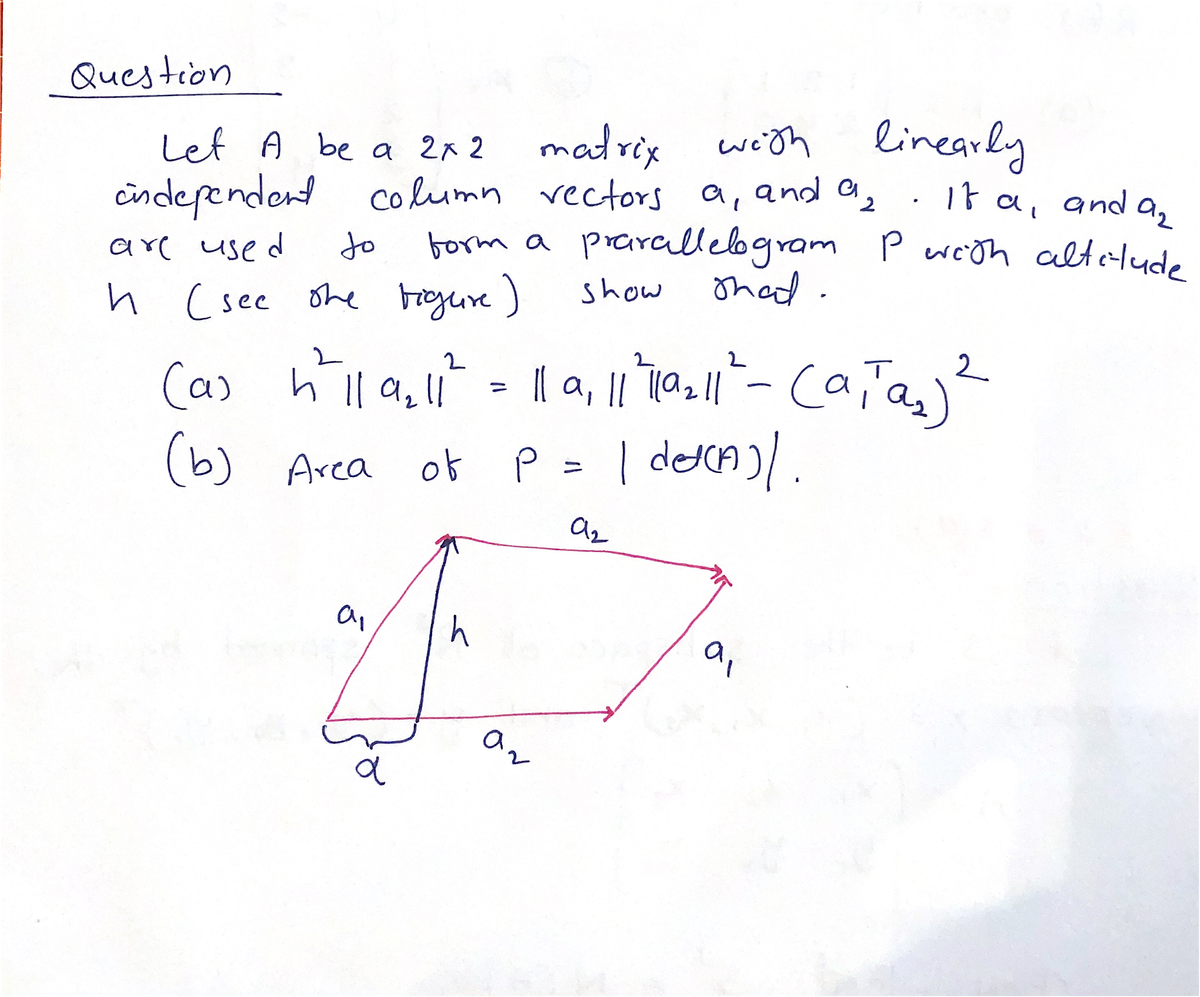 Question
Let A be a 2x2 matrix with linearly
independent column vectors a₁ and a₂. If a₁ and a₂
are used to form a prarallelogram P with altitude
h (see the figure) show that.
(a) h²||a₂||² = ||a₁||²||a₂||² - (a₁ᵀa₂)²
(b) Area of P = |det(A)|.
a₂
a₁
h
a₁
a₂
α